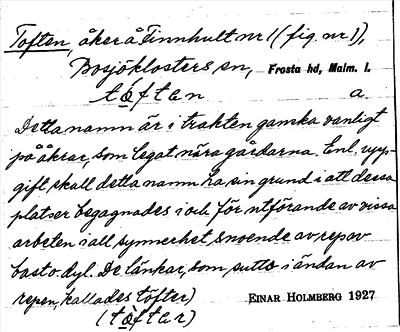 Toften, åker å Finnhult nr 1 (fig. nr 1),
Bosjöklosters sn, Frosta hd, Malm. l.
tǫftɛn a.
Detta namn är i trakten ganska vanligt
på åkrar, som legat nära gårdarna. Enl. upp-
gift skall detta namn ha sin grund i att dessa
platser begagnades i och för utförande av vissa
arbeten i all synnerhet snoende av rep av
bast o. dyl. De länkar, som sutto i ändan av
repen, kallades töfter)
EINAR HOLMBERG 1927